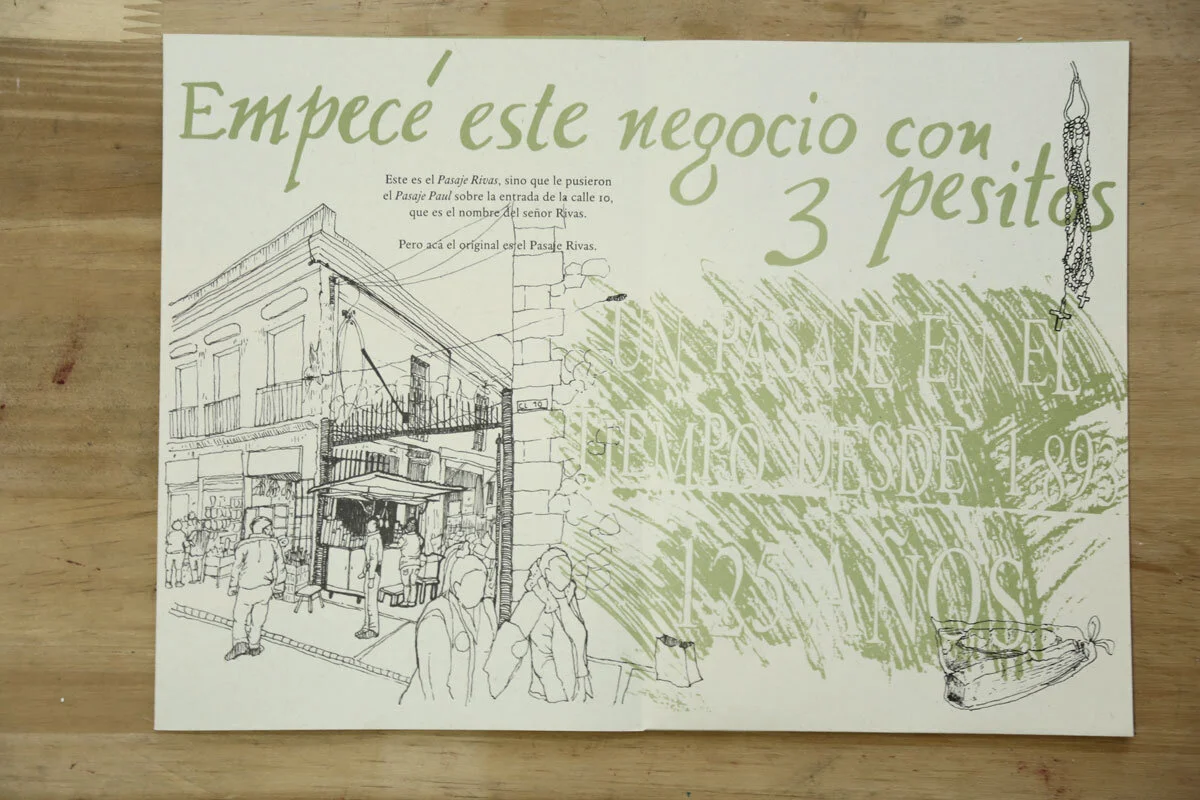 Empecé este negocio con
3 pesitos
Este es el Pasaje Rivas, sino que le pusieron
el Pasaje Paul sobre la entrada de la calle 10,
que es el nombre del señor Rivas.
Pero acá el original es el Pasaje Rivas.
CL 10
UN PASAJE EN EL
TIEMPO DESDE 1893
125 AÑOS